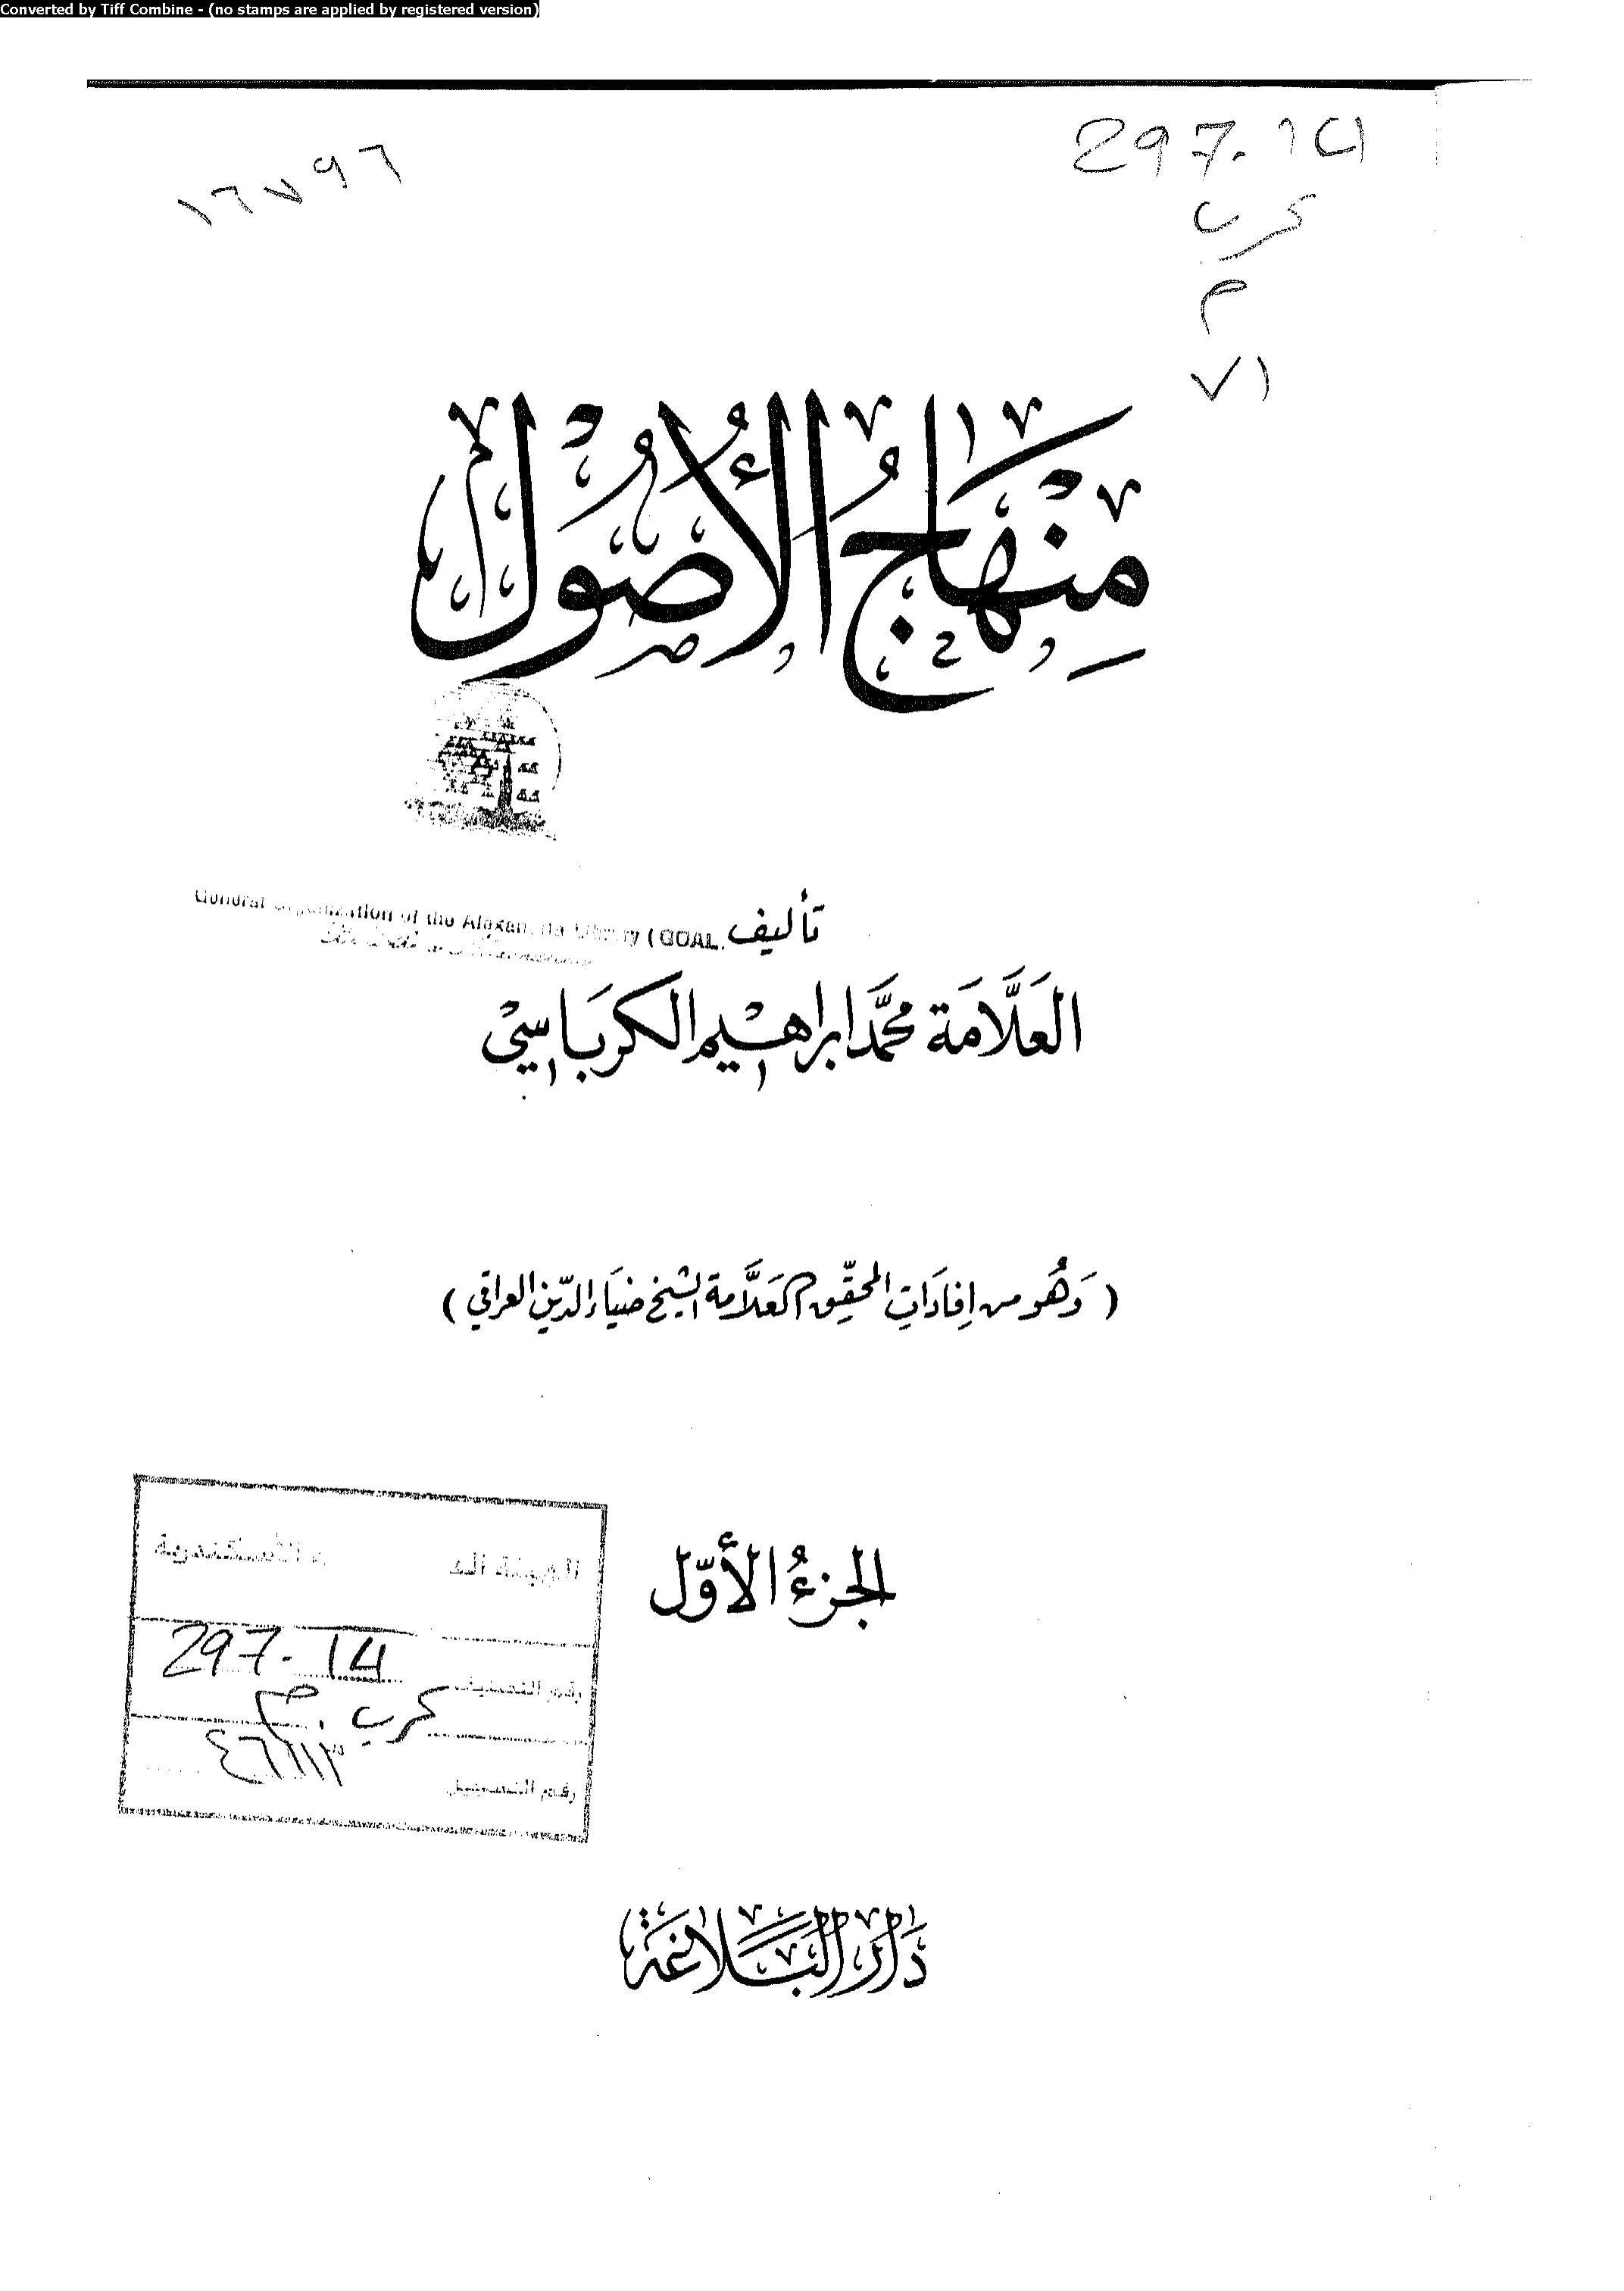 Converted by Tiff Combine - (no stamps are applied by registered version)
297.14
١٦٧٩٦
كرب
م
٧١
مِنْهَاجُ الأُصُول
General Organization of the Alexandria Library (GOAL
تأليف
العَلَّامَة محمَّد ابراهيْم الكربَاسِيْ
( وَهُو من اِفادَاتِ المحقِّق العَلَّامة الشيخ ضيَاء الدّين العراقي )
الجزءُ الأوّل
297.14
رقم التصنيف
كرب . م
رقم التسجيل
دَارُ البَلاغَة